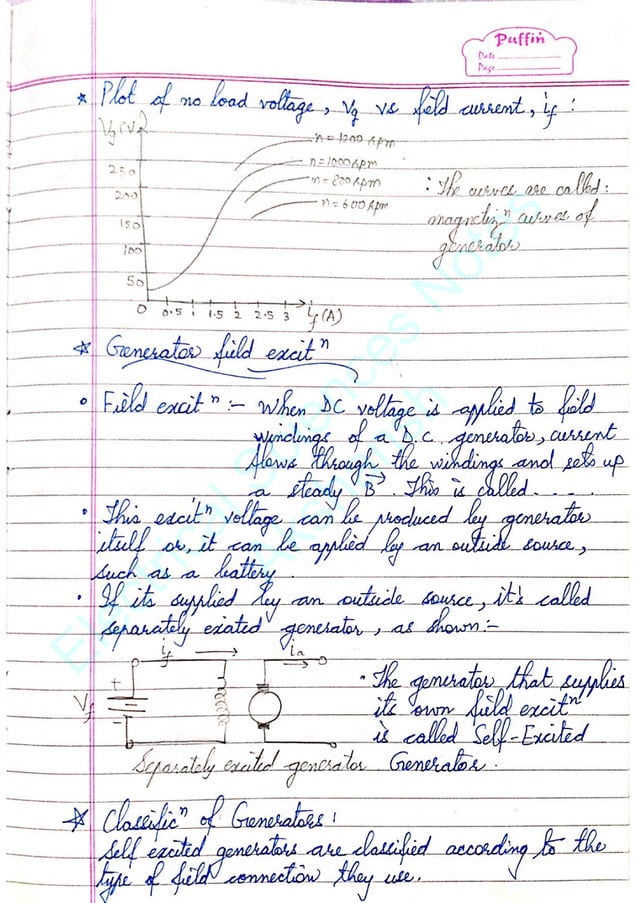 Puffin
Date
Page
* Plot of no load voltage, Vg vs field current, if :
Vg (V)
n = 1200 rpm
n = 1000 rpm
n = 800 rpm
n = 600 rpm
250
200
150
100
50
0 0.5 1 1.5 2 2.5 3 if (A)
: The curves are called:
magnetizⁿ curves of
generator
* Generator field excitⁿ
• Field excitⁿ :- When DC voltage is applied to field
windings of a D.C. generator, current
flows through the windings and sets up
a steady B⃗. This is called....
• This excitⁿ voltage can be produced by generator
itself or, it can be applied by an outside source,
such as a battery.
• If its supplied by an outside source, it's called
separately exiated generator, as shown:-
if
ia
+
Vf
-
Separately excited generator
• The generator that supplies
its own field excitⁿ
is called Self-Excited
Generator.
* Classificⁿ of Generators:
Self excited generators are classified according to the
type of field connection they use.